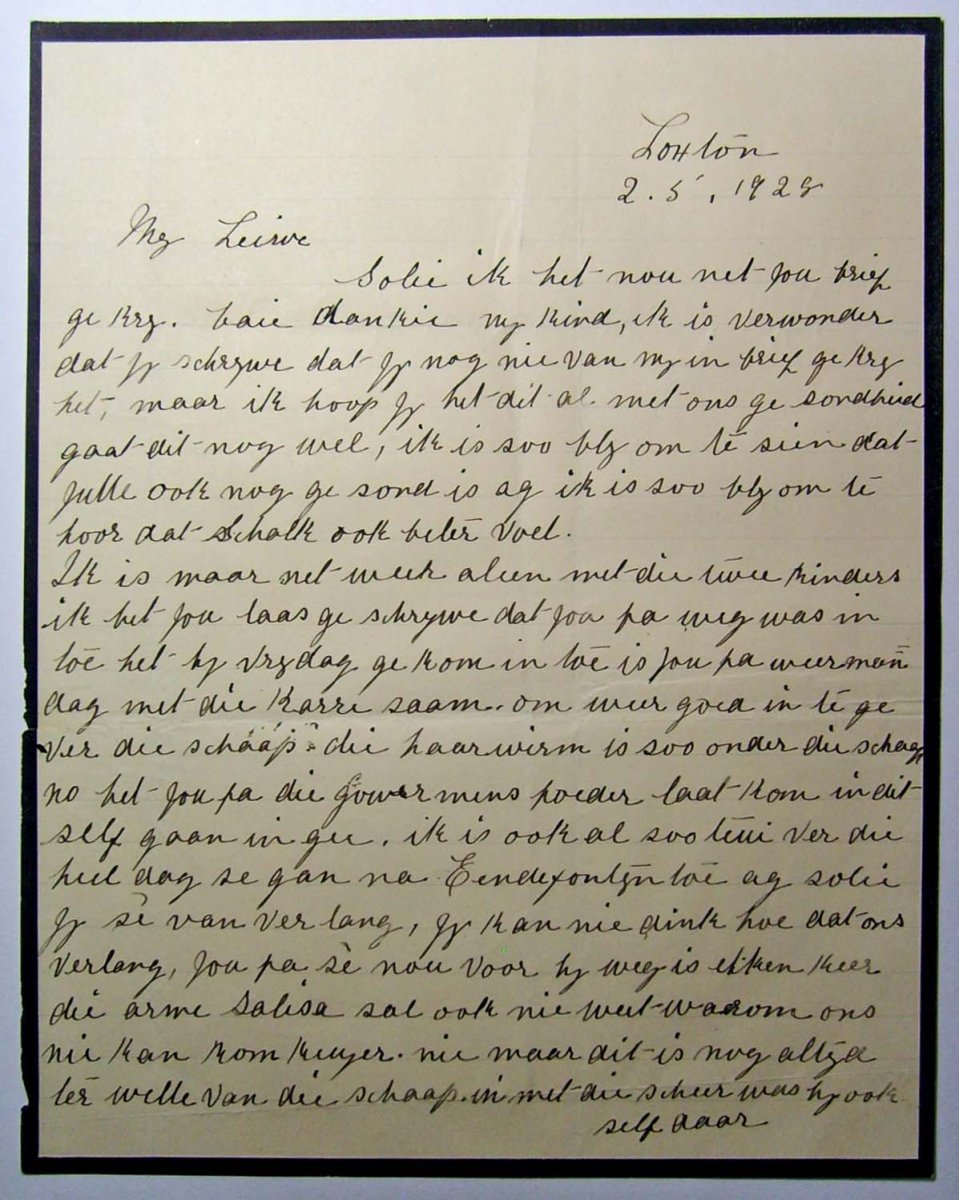 Loxton
2.5.1928
My Leiwe
Solie ik het nou net jou brief
ge kry. baie dankie my kind, ik is verwonder
dat jy schrywe dat jy nog nie van my in brief ge kry
het, maar ik hoop jy het dit al. met ons ge sondheid
gaat dit nog wel, ik is soo bly om te sien dat
julle ook nog ge sond is ag ik is soo bly om te
hoor dat Schalk ook beter voel.
Ik is maar net week aleen met die twee kinders
ik het jou laas ge schrywe dat jou pa weg was in
toe het hy vrydag ge kom in toe is jou pa weer män
dag met die karre saam. om weer goed in te ge
ver die schaap die haarwirm is soo onder die schaap
no het jou pa die gowermens poeder laat kom in dit
self gaan in gee. ik is ook al soo teüi ver die
heel dag se gan na Eendefontyn toe ag solie
jy sê van ver lang, jy kan nie dink hoe dat ons
verlang, jou pa sê nou voor hy weg is elken keer
die arme Salisa sal ook nie weet warom ons
nie kan kom kuyer. nie maar dit is nog altyd
ter welle van die schaap. in met die scheer was hy ook
self daar